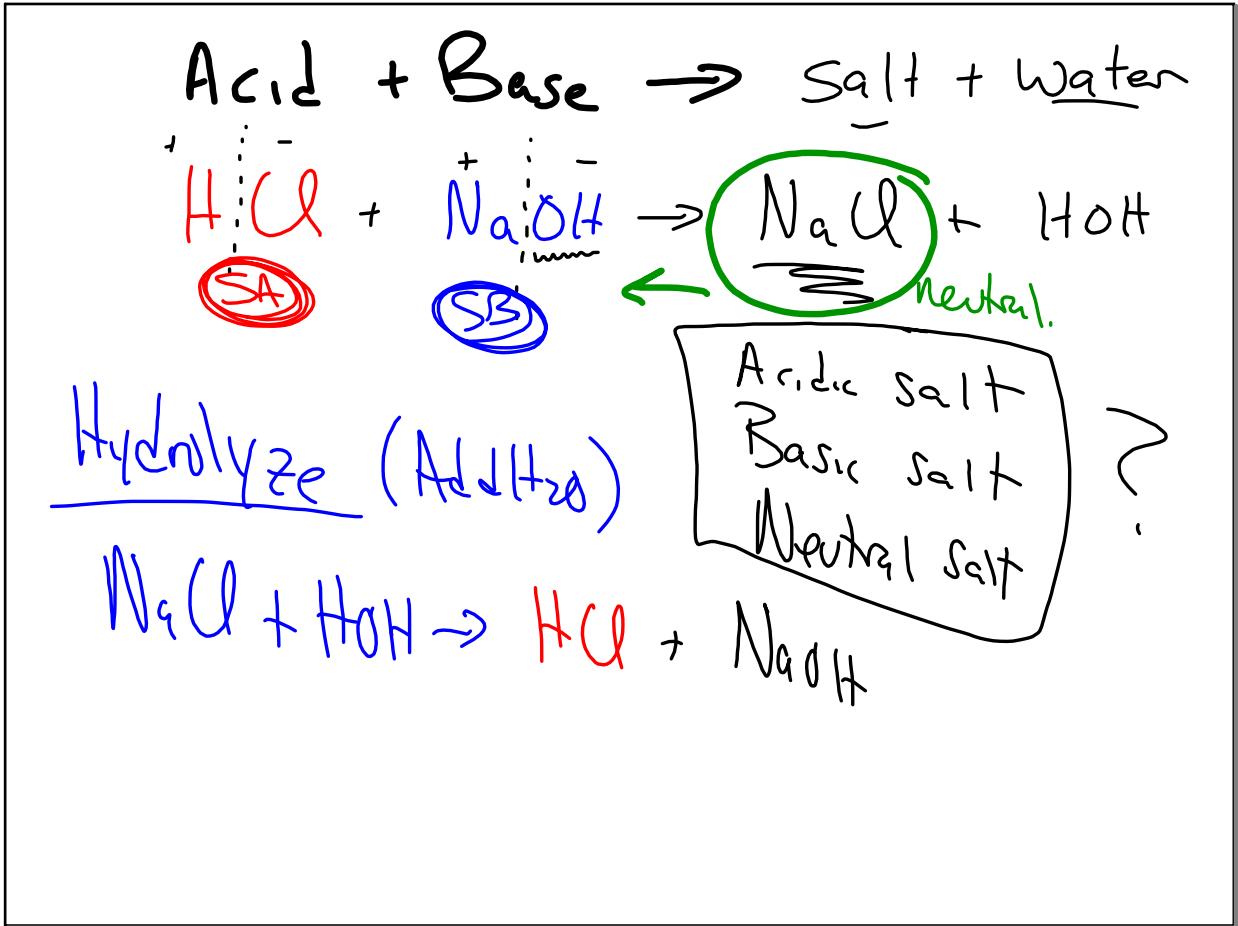 Acid + Base → Salt + Water
+ - + -
HCl + NaOH → NaCl + HOH
SA SB ← neutral.
Acidic salt
Basic salt ?
Neutral Salt
Hydrolyze (Add H2O)
NaCl + HOH → HCl + NaOH